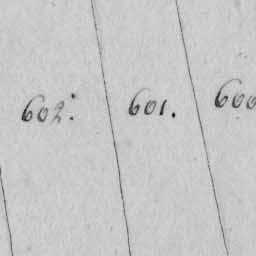 602.
601.
600